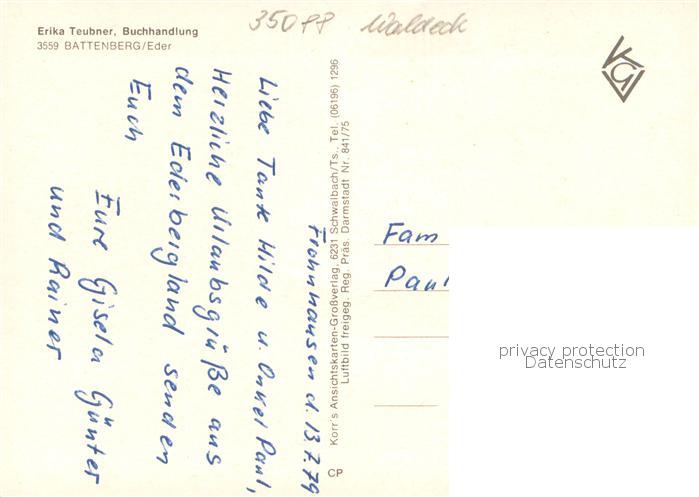 Erika Teubner, Buchhandlung
3559 BATTENBERG/Eder
35088 Waldeck
Frohnhausen d. 13.7.79
Liebe Tante Hilde u. Onkel Paul,
Herzliche Urlaubsgrüße aus
dem Ederbergland senden
Euch
Eure Gisela Günter
und Rainer
Korr's Ansichtskarten-Großverlag, 6231 Schwalbach/Ts., Tel. (06196) 1296
Luftbild freigeg. Reg. Präs. Darmstadt Nr. 841/75
CP
KGV
Fam
Paul
privacy protection
Datenschutz